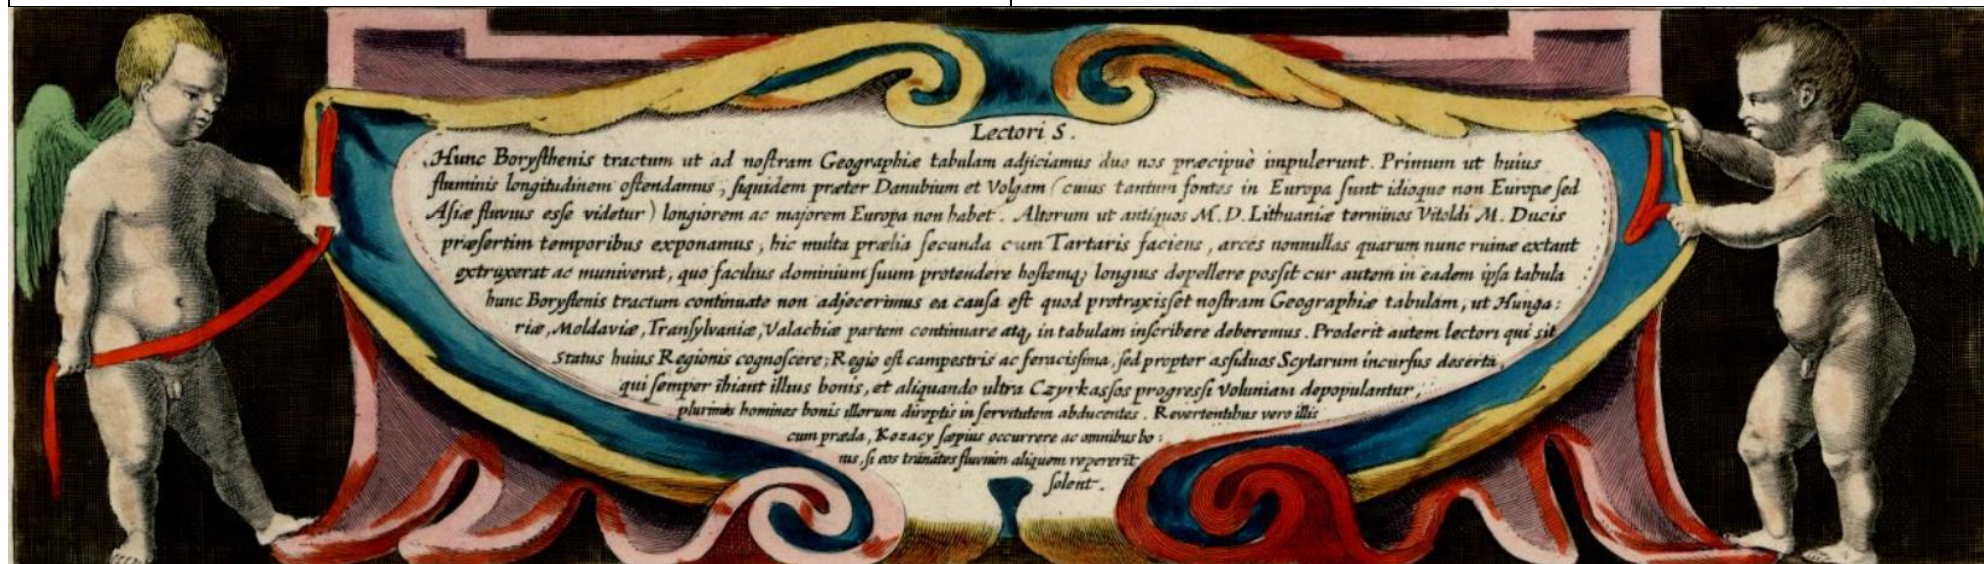 Lectori S.
Hunc Borysthenis tractum ut ad nostram Geographiæ tabulam adjiciamus duo nos præcipuè impulerunt. Primum ut huius
fluminis longitudinem ostendamus, siquidem præter Danubium et Volgam (cuius tantum fontes in Europa sunt idioque non Europæ sed
Asiæ fluvius esse videtur) longiorem ac majorem Europa non habet. Alterum ut antiquos M. D. Lithuaniæ terminos Vitoldi M. Ducis
præsertim temporibus exponamus, hic multa prælia secunda cum Tartaris faciens, arces nonnullas quarum nunc ruinæ extant
extruxerat ac muniverat, quo facilius dominium suum protendere hostemq; longius depellere possit cur autem in eadem ipsa tabula
hunc Borystenis tractum continuate non adjecerimus ea causa est quod protraxisset nostram Geographiæ tabulam, ut Hunga:
riæ, Moldaviæ, Transylvaniæ, Valachiæ partem continuare atq; in tabulam inscribere deberemus. Proderit autem lectori qui sit
status huius Regionis cognoscere; Regio est campestris ac feracissima, sed propter assiduos Scytarum incursus deserta,
qui semper ihiant illius bonis, et aliquando ultra Czyrkassos progressi Voluniam depopulantur,
plurimos homines bonis illorum direptis in servitutem abducentes. Revertentibus vero illis
cum præda, Kozacy sæpius occurrere ac omnibus bo:
nis, si eos tranātes fluvium aliquem repererit
solent.